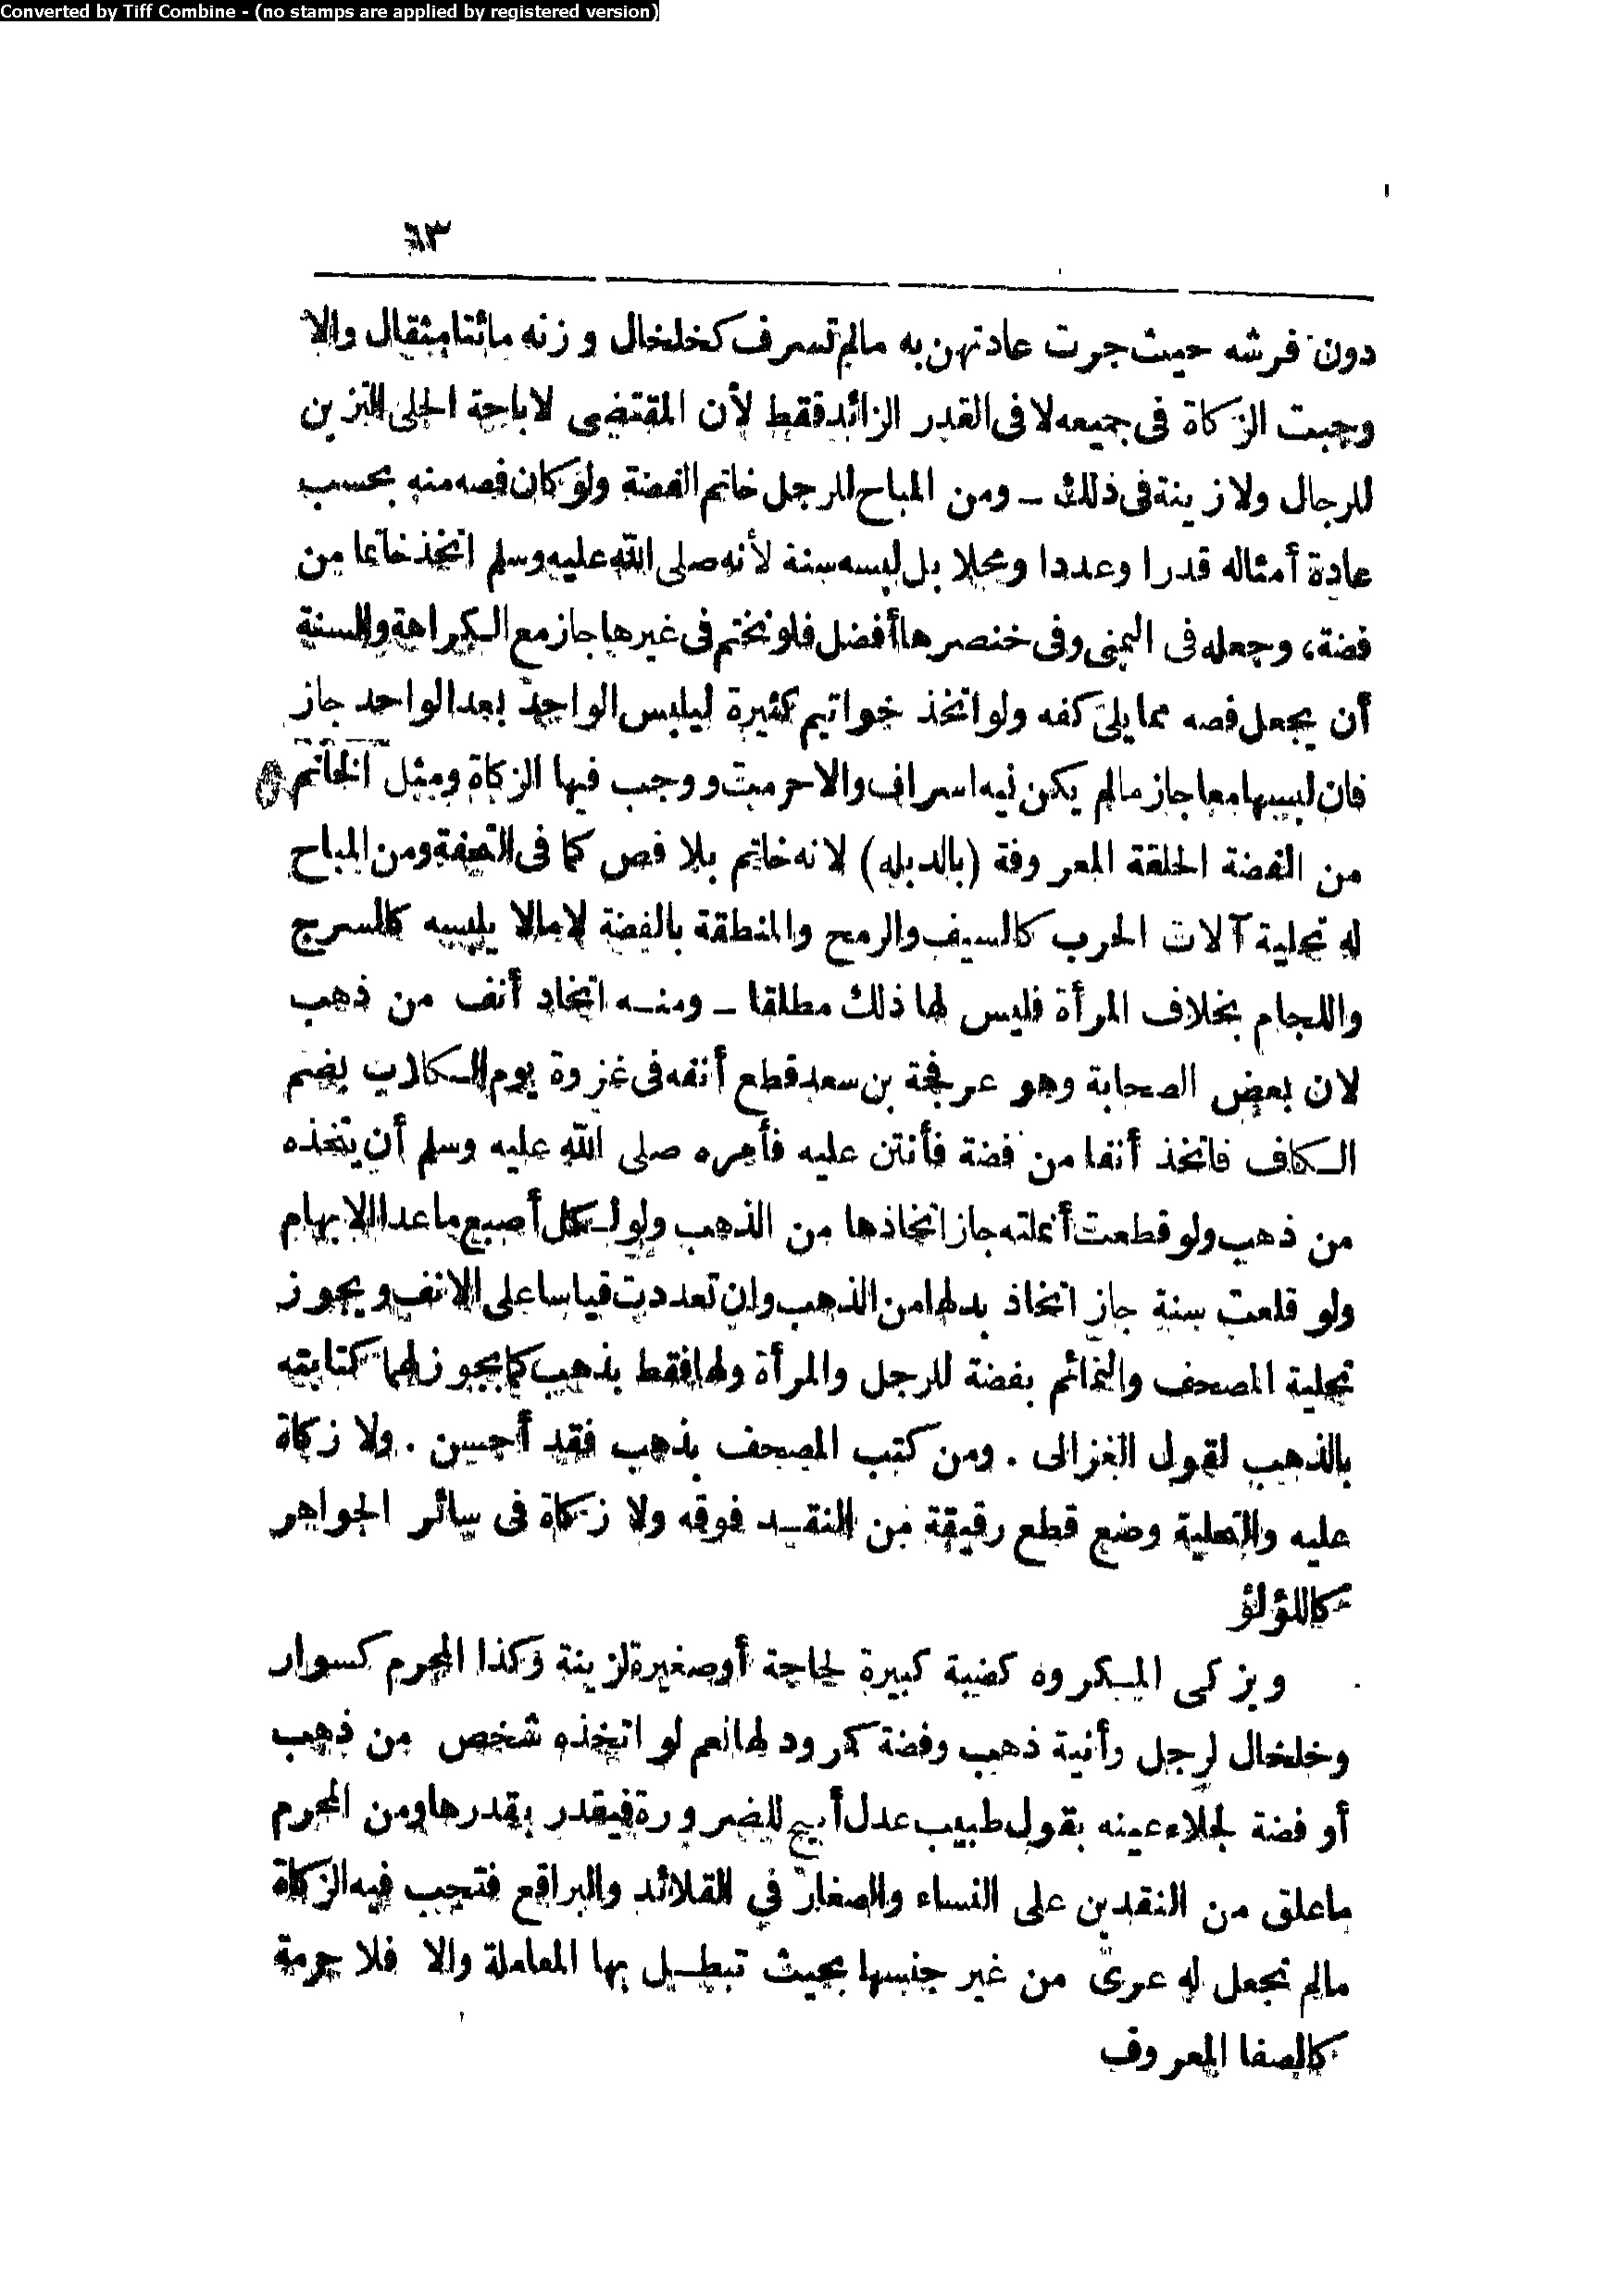 Converted by Tiff Combine - (no stamps are applied by registered version)
٦٣
دون فرشه حيث جرت عادتهن به مالم تسرف كخلخال وزنه مائتا مثقال والا
وجبت الزكاة فى جميعه لا فى القدر الزائد فقط لأن المقتضى لاباحة الحلى التزين
للرجال ولا زينة فى ذلك – ومن المباح للرجل خاتم الفضة ولو كان فصه منه بحسب
عادة أمثاله قدرا وعددا ومحلا بل لبسه سنة لأنه صلى الله عليه وسلم اتخذ خاتما من
فضة، وجعله فى اليمنى وفى خنصرها أفضل فلو تختم فى غيرها جاز مع الكراهة والسنة
أن يجعل فصه مما يلى كفه ولو اتخذ خواتيم كثيرة ليلبس الواحد بعد الواحد جاز
فان لبسها معا جاز مالم يكن فيه اسراف والا حرمت ووجب فيها الزكاة ومثل الخاتم
من الفضة الحلقة المعروفة (بالدبله) لانه خاتم بلا فص كما فى التحفة ومن المباح
له تحلية آلات الحرب كالسيف والرمح والمنطقة بالفضة لا مالا يلبسه كالسرج
واللجام بخلاف المرأة فليس لها ذلك مطلقا – ومنه اتخاد أنف من ذهب
لان بعض الصحابة وهو عرفجة بن سعد قطع أنفه فى غزوة يوم الكلاب بضم
الكاف فاتخذ أنفا من فضة فأنتن عليه فأمره صلى الله عليه وسلم أن يتخذه
من ذهب ولو قطعت أنملته جاز اتخاذها من الذهب ولو لكل أصبع ماعدا الابهام
ولو قلعت سنة جاز اتخاذ بدلها من الذهب وان تعددت قياسا على الانف ويجوز
تحلية المصحف والتمائم بفضة للرجل والمرأة ولها فقط بذهب كما يجوز لهما كتابته
بالذهب لقول الغزالى . ومن كتب المصحف بذهب فقد أحسن . ولا زكاة
عليه والتحلية وضع قطع رقيقة من النقد فوقه ولا زكاة فى سائر الجواهر
كاللؤلؤ
ويزكى المكروه كضبة كبيرة لحاجة أو صغيرة لزينة وكذا المحرم كسوار
وخلخال لرجل وأنية ذهب وفضة كمرود لها نعم لو اتخذه شخص من ذهب
أو فضة لجلاء عينه بقول طبيب عدل أبيح للضرورة فيقدر بقدرها ومن المحرم
ماعلق من النقدين على النساء والصغار في القلائد والبراقع فتجب فيه الزكاة
مالم تجعل له عرى من غير جنسها بحيث تبطل بها المعاملة والا فلا حرمة
كالصفا المعروف